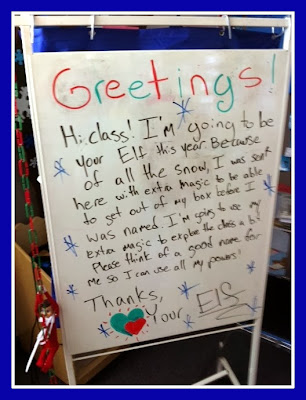 Greetings!
Hi class! I'm going to be
your Elf this year. Because
of all the snow, I was sent
here with extra magic to be able
to get out of my box before I
was named. I'm going to use my
extra magic to explore the class a bit
Please think of a good name for
me so I can use all my powers!
Thanks,
Your Elf